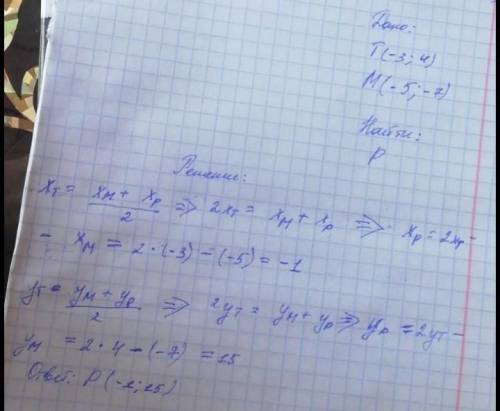 Дано:
T(-3; 4)
M(-5; -7)
Найти:
P
Решение:
xT = (xM + xP)/2 => 2xT = xM + xP => xP = 2xT -
- xM = 2·(-3) - (-5) = -1
yT = (yM + yP)/2 => 2yT = yM + yP => yP = 2yT -
yM = 2·4 - (-7) = 15
Ответ: P(-1; 15)